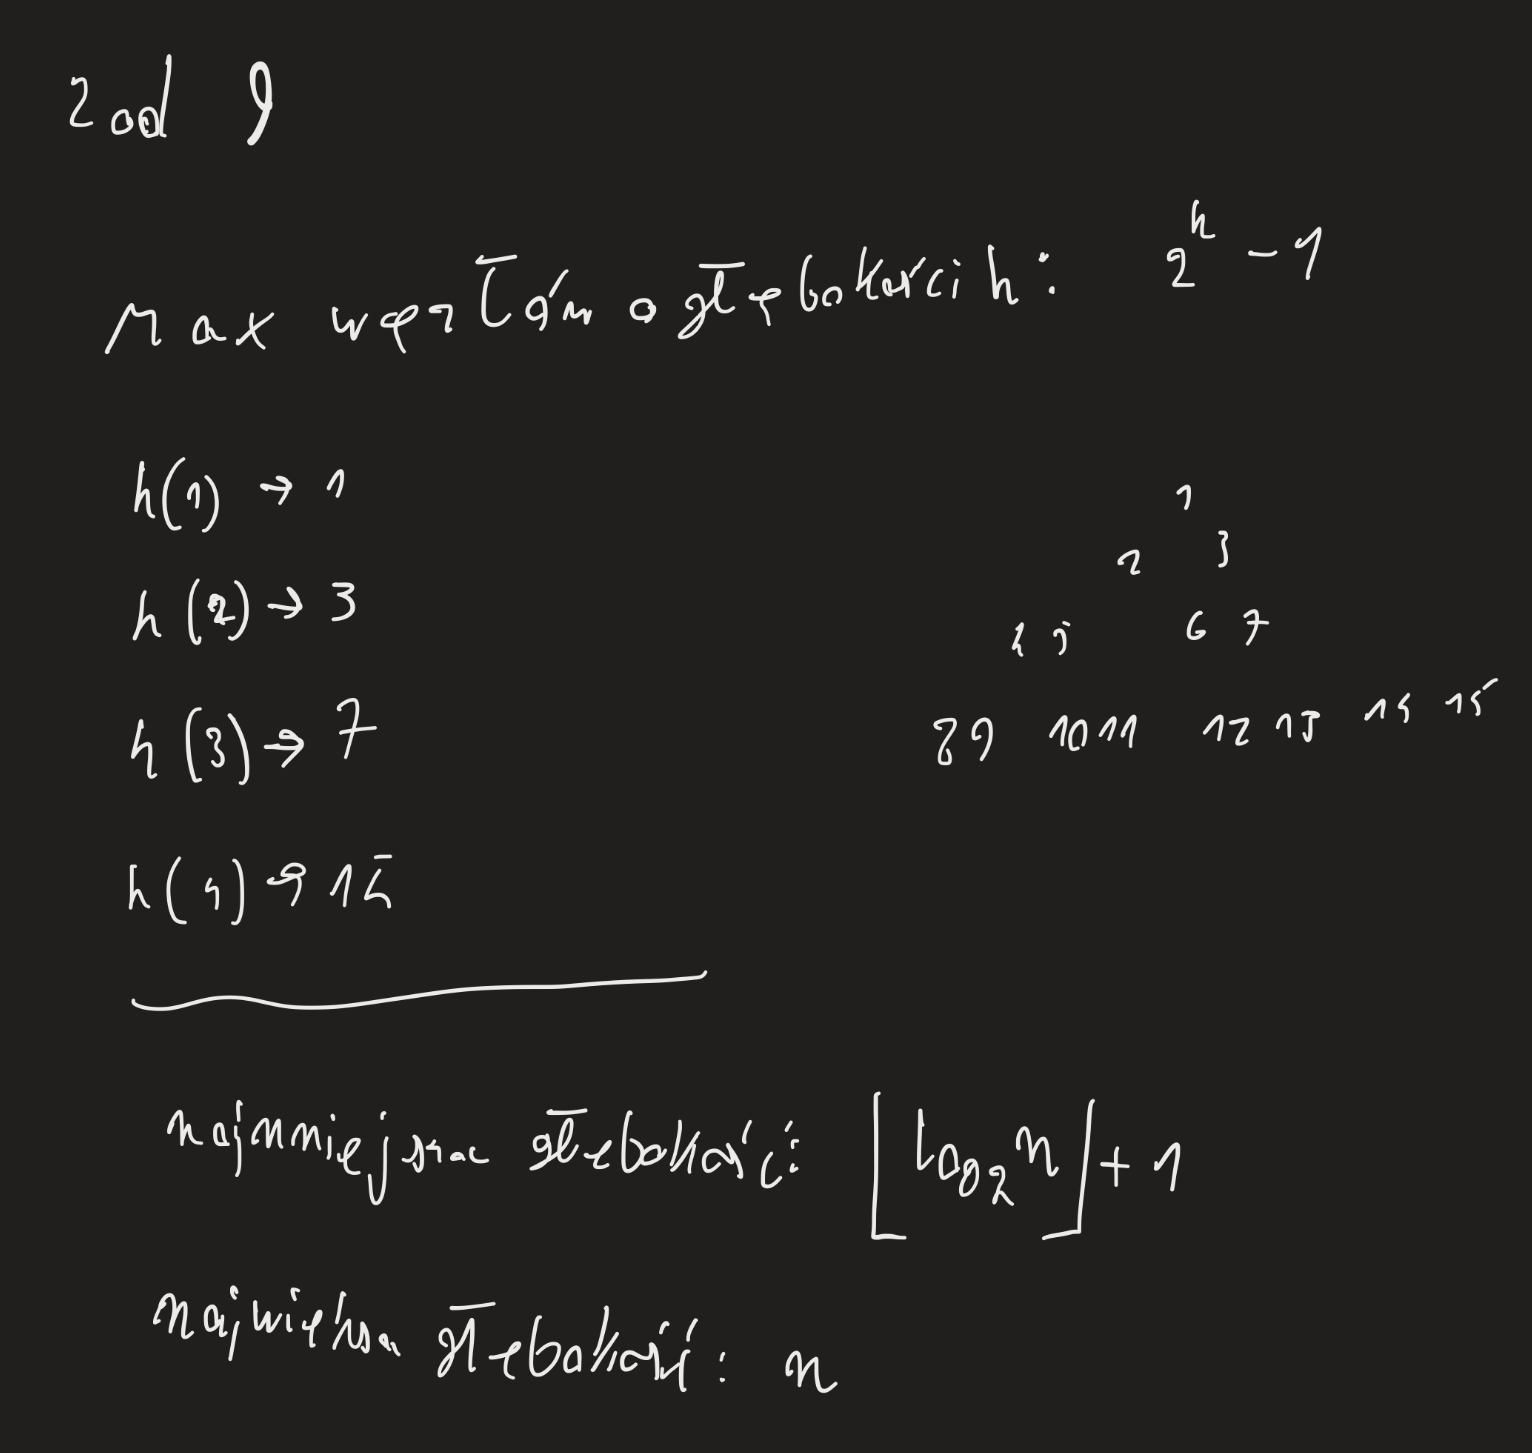 Zad 9
Max węzłów o głębokości h: 2^h - 1
h(1) → 1
h(2) → 3
h(3) → 7
h(4) → 15
1
2 3
4 5 6 7
8 9 10 11 12 13 14 15
najmniejsza głębokość: ⌊log₂n⌋ + 1
największa głębokość: n